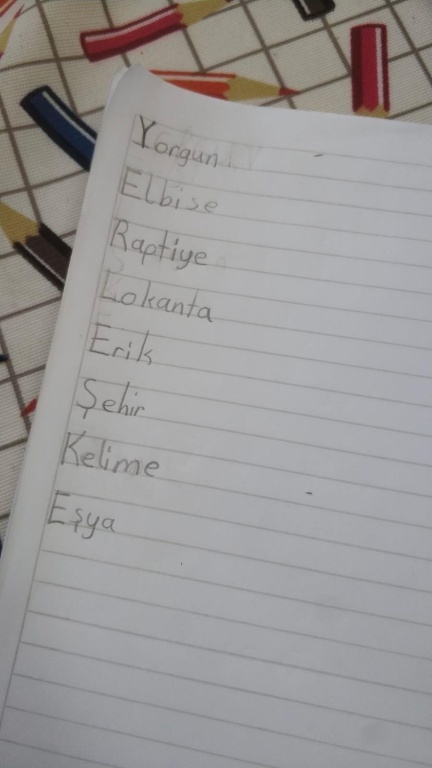 Yorgun
Elbise
Raptiye
Lokanta
Erik
Şehir
Kelime
Eşya